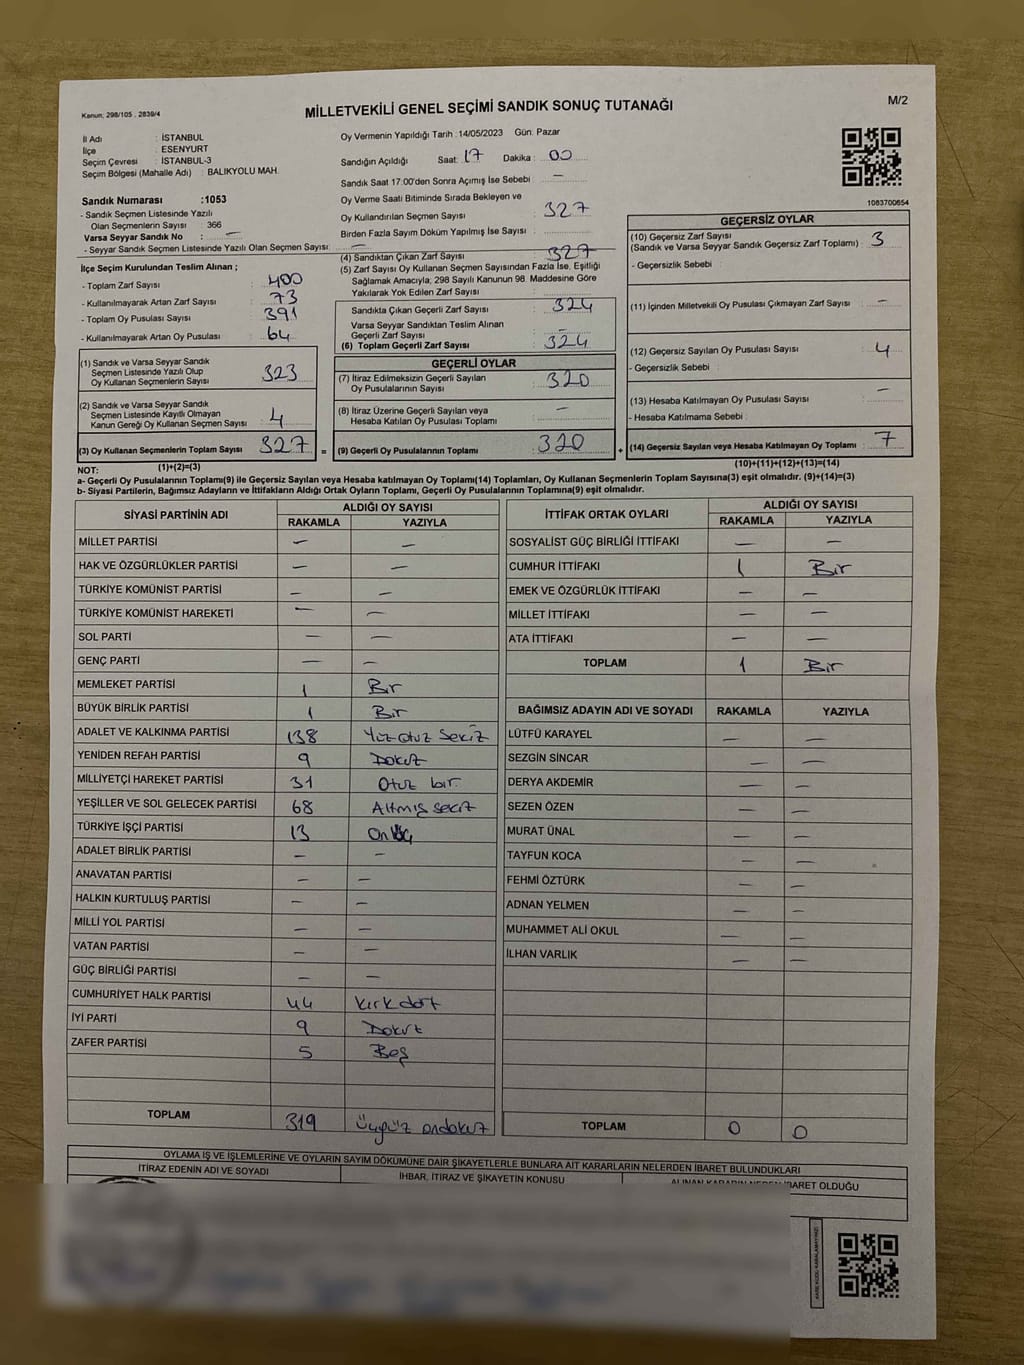 Kanun; 298/105 . 2839/4
MİLLETVEKİLİ GENEL SEÇİMİ SANDIK SONUÇ TUTANAĞI
M/2
İl Adı : İSTANBUL
İlçe : ESENYURT
Seçim Çevresi : İSTANBUL-3
Seçim Bölgesi (Mahalle Adı) : BALIKYOLU MAH.
Oy Vermenin Yapıldığı Tarih :14/05/2023 Gün: Pazar
Sandığın Açıldığı Saat: 17 Dakika : 00
Sandık Saat 17:00'den Sonra Açımış İse Sebebi : —
Oy Verme Saati Bitiminde Sırada Bekleyen ve
Oy Kullandırılan Seçmen Sayısı : 327
Birden Fazla Sayım Döküm Yapılmış İse Sayısı :
1083700654
Sandık Numarası :1053
- Sandık Seçmen Listesinde Yazılı
Olan Seçmenlerin Sayısı : 366
Varsa Seyyar Sandık No : —
- Seyyar Sandık Seçmen Listesinde Yazılı Olan Seçmen Sayısı: —
İlçe Seçim Kurulundan Teslim Alınan ;
- Toplam Zarf Sayısı : 400
- Kullanılmayarak Artan Zarf Sayısı : 73
- Toplam Oy Pusulası Sayısı : 391
- Kullanılmayarak Artan Oy Pusulası : 64
(1) Sandık ve Varsa Seyyar Sandık
Seçmen Listesinde Yazılı Olup
Oy Kullanan Seçmenlerin Sayısı : 323
(2) Sandık ve Varsa Seyyar Sandık
Seçmen Listesinde Kayıtlı Olmayan
Kanun Gereği Oy Kullanan Seçmen Sayısı : 4
(3) Oy Kullanan Seçmenlerin Toplam Sayısı : 327
(1)+(2)=(3)
(4) Sandıktan Çıkan Zarf Sayısı : 327
(5) Zarf Sayısı Oy Kullanan Seçmen Sayısından Fazla İse, Eşitliği
Sağlamak Amacıyla; 298 Sayılı Kanunun 98. Maddesine Göre
Yakılarak Yok Edilen Zarf Sayısı :
Sandıkta Çıkan Geçerli Zarf Sayısı : 324
Varsa Seyyar Sandıktan Teslim Alınan
Geçerli Zarf Sayısı : —
(6) Toplam Geçerli Zarf Sayısı : 324
GEÇERLİ OYLAR
(7) İtiraz Edilmeksizin Geçerli Sayılan
Oy Pusulalarının Sayısı : 320
(8) İtiraz Üzerine Geçerli Sayılan veya
Hesaba Katılan Oy Pusulası Toplamı : —
= (9) Geçerli Oy Pusulalarının Toplamı : 320 +
GEÇERSİZ OYLAR
(10) Geçersiz Zarf Sayısı
(Sandık ve Varsa Seyyar Sandık Geçersiz Zarf Toplamı) : 3
- Geçersizlik Sebebi :
(11) İçinden Milletvekili Oy Pusulası Çıkmayan Zarf Sayısı : —
(12) Geçersiz Sayılan Oy Pusulası Sayısı : 4
- Geçersizlik Sebebi :
(13) Hesaba Katılmayan Oy Pusulası Sayısı : —
- Hesaba Katılmama Sebebi :
(14) Geçersiz Sayılan veya Hesaba Katılmayan Oy Toplamı : 7
(10)+(11)+(12)+(13)=(14)
NOT:
a- Geçerli Oy Pusulalarının Toplamı(9) ile Geçersiz Sayılan veya Hesaba katılmayan Oy Toplamı(14) Toplamları, Oy Kullanan Seçmenlerin Toplam Sayısına(3) eşit olmalıdır. (9)+(14)=(3)
b- Siyasi Partilerin, Bağımsız Adayların ve İttifakların Aldığı Ortak Oyların Toplamı, Geçerli Oy Pusulalarının Toplamına(9) eşit olmalıdır.
SİYASİ PARTİNİN ADI ALDIĞI OY SAYISI
RAKAMLA YAZIYLA
MİLLET PARTİSİ — —
HAK VE ÖZGÜRLÜKLER PARTİSİ — —
TÜRKİYE KOMÜNİST PARTİSİ — —
TÜRKİYE KOMÜNİST HAREKETİ — —
SOL PARTİ — —
GENÇ PARTİ — —
MEMLEKET PARTİSİ 1 Bir
BÜYÜK BİRLİK PARTİSİ 1 Bir
ADALET VE KALKINMA PARTİSİ 138 Yüz otuz Sekiz
YENİDEN REFAH PARTİSİ 9 Dokuz
MİLLİYETÇİ HAREKET PARTİSİ 31 Otuz bir.
YEŞİLLER VE SOL GELECEK PARTİSİ 68 Altmış sekiz
TÜRKİYE İŞÇİ PARTİSİ 13 On üç
ADALET BİRLİK PARTİSİ — —
ANAVATAN PARTİSİ — —
HALKIN KURTULUŞ PARTİSİ — —
MİLLİ YOL PARTİSİ — —
VATAN PARTİSİ — —
GÜÇ BİRLİĞİ PARTİSİ — —
CUMHURİYET HALK PARTİSİ 44 Kırk dört
İYİ PARTİ 9 Dokuz
ZAFER PARTİSİ 5 Beş
TOPLAM 319 Üçyüz ondokuz
İTTİFAK ORTAK OYLARI ALDIĞI OY SAYISI
RAKAMLA YAZIYLA
SOSYALİST GÜÇ BİRLİĞİ İTTİFAKI — —
CUMHUR İTTİFAKI 1 Bir
EMEK VE ÖZGÜRLÜK İTTİFAKI — —
MİLLET İTTİFAKI — —
ATA İTTİFAKI — —
TOPLAM 1 Bir
BAĞIMSIZ ADAYIN ADI VE SOYADI RAKAMLA YAZIYLA
LÜTFÜ KARAYEL — —
SEZGİN SİNCAR — —
DERYA AKDEMİR — —
SEZEN ÖZEN — —
MURAT ÜNAL — —
TAYFUN KOCA — —
FEHMİ ÖZTÜRK — —
ADNAN YELMEN — —
MUHAMMET ALİ OKUL — —
İLHAN VARLIK — —
TOPLAM 0 0
OYLAMA İŞ VE İŞLEMLERİNE VE OYLARIN SAYIM DÖKÜMÜNE DAİR ŞİKAYETLERLE BUNLARA AİT KARARLARIN NELERDEN İBARET BULUNDUKLARI
İTİRAZ EDENİN ADI VE SOYADI İHBAR, İTİRAZ VE ŞİKAYETİN KONUSU ALINAN KARARIN NEDEN İBARET OLDUĞU